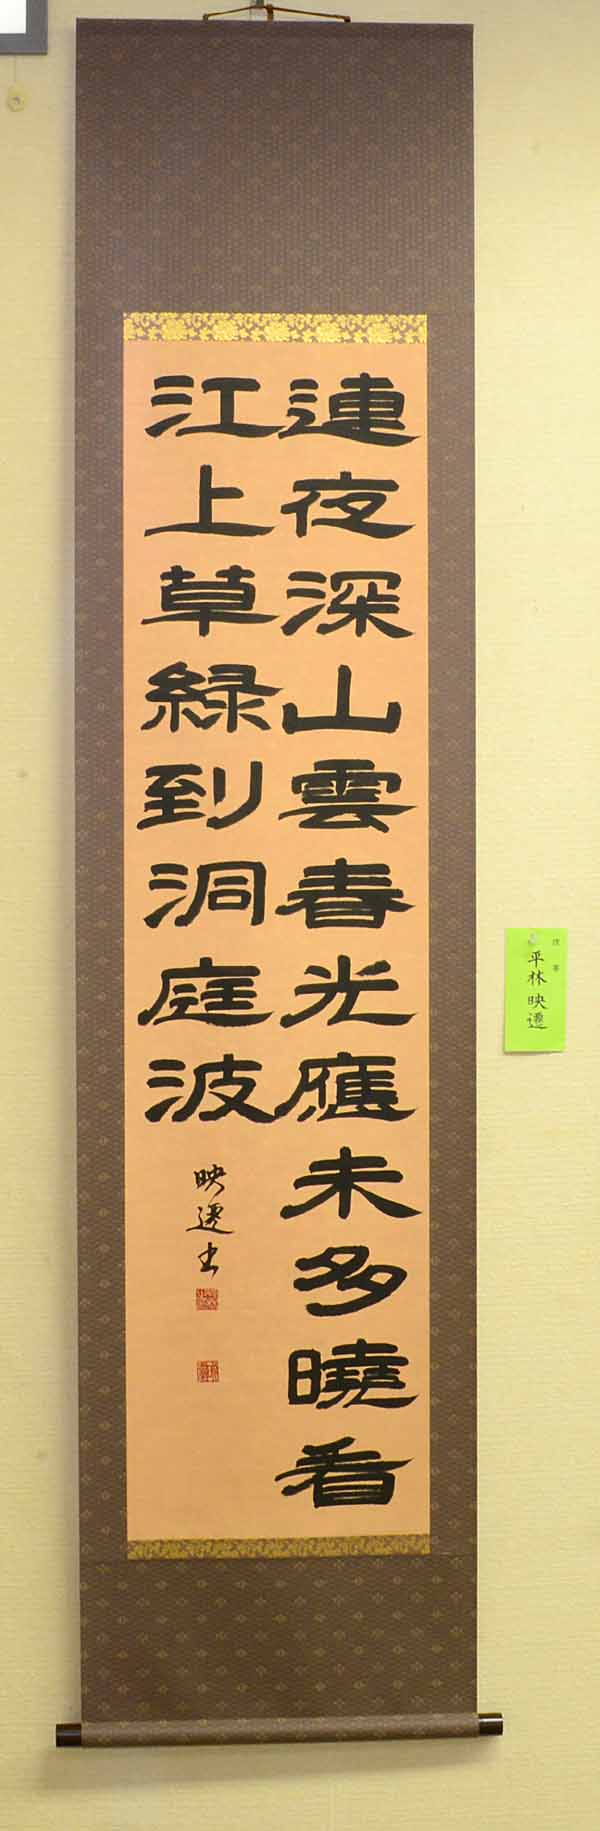 連夜深山雲春光應未多曉看
江上草緑到洞庭波
映遷書
平林映遷